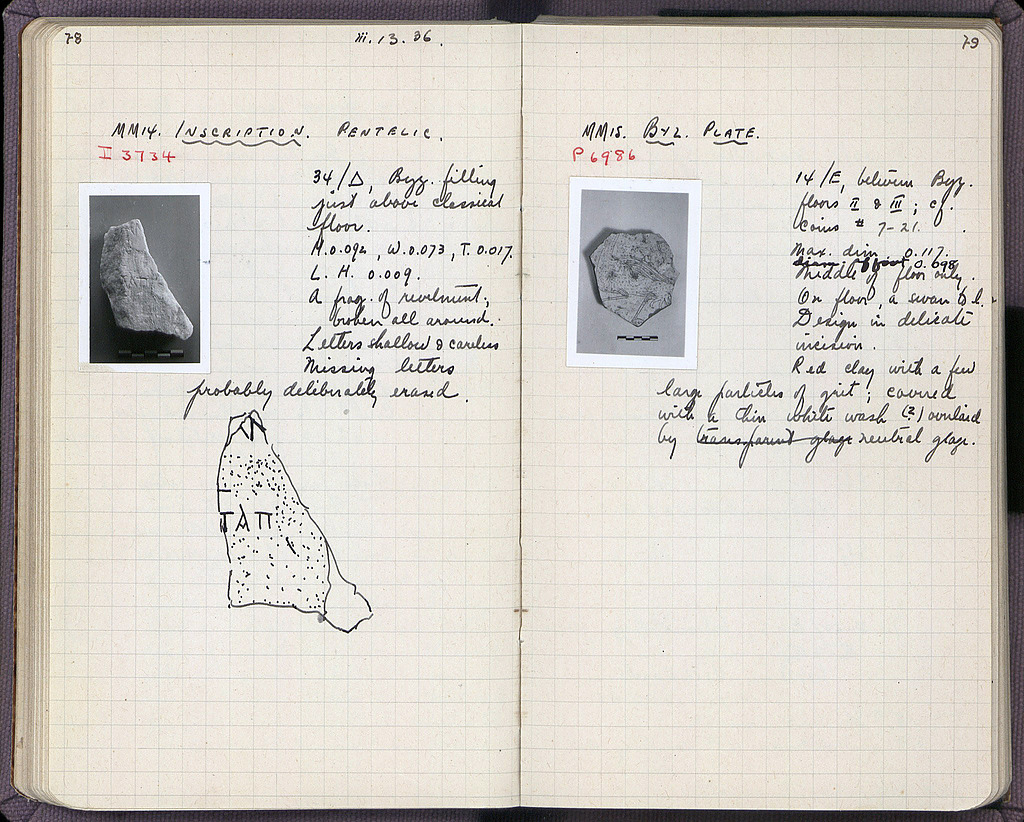 78
iii. 13. 36.
MM14. INSCRIPTION. PENTELIC.
I 3734
34/Δ, Byz. filling
just above classical
floor.
H. 0.092, W. 0.073, T. 0.017.
L. H. 0.009.
A frag. of revetment;
broken all around.
Letters shallow & careless
Missing letters
probably deliberately erased.
ΤΑΠ
79
MM15. BYZ. PLATE.
P 6986
14/E, between Byz.
floors II & III; cf.
coins # 7-21.
Max. dim. 0.117.
diam. of foot 0.098
Middle of floor only.
On floor, a swan to l.
Design in delicate
incision.
Red clay with a few
large particles of grit; covered
with a thin white wash (?) overlaid
by transparent glaze neutral glaze.